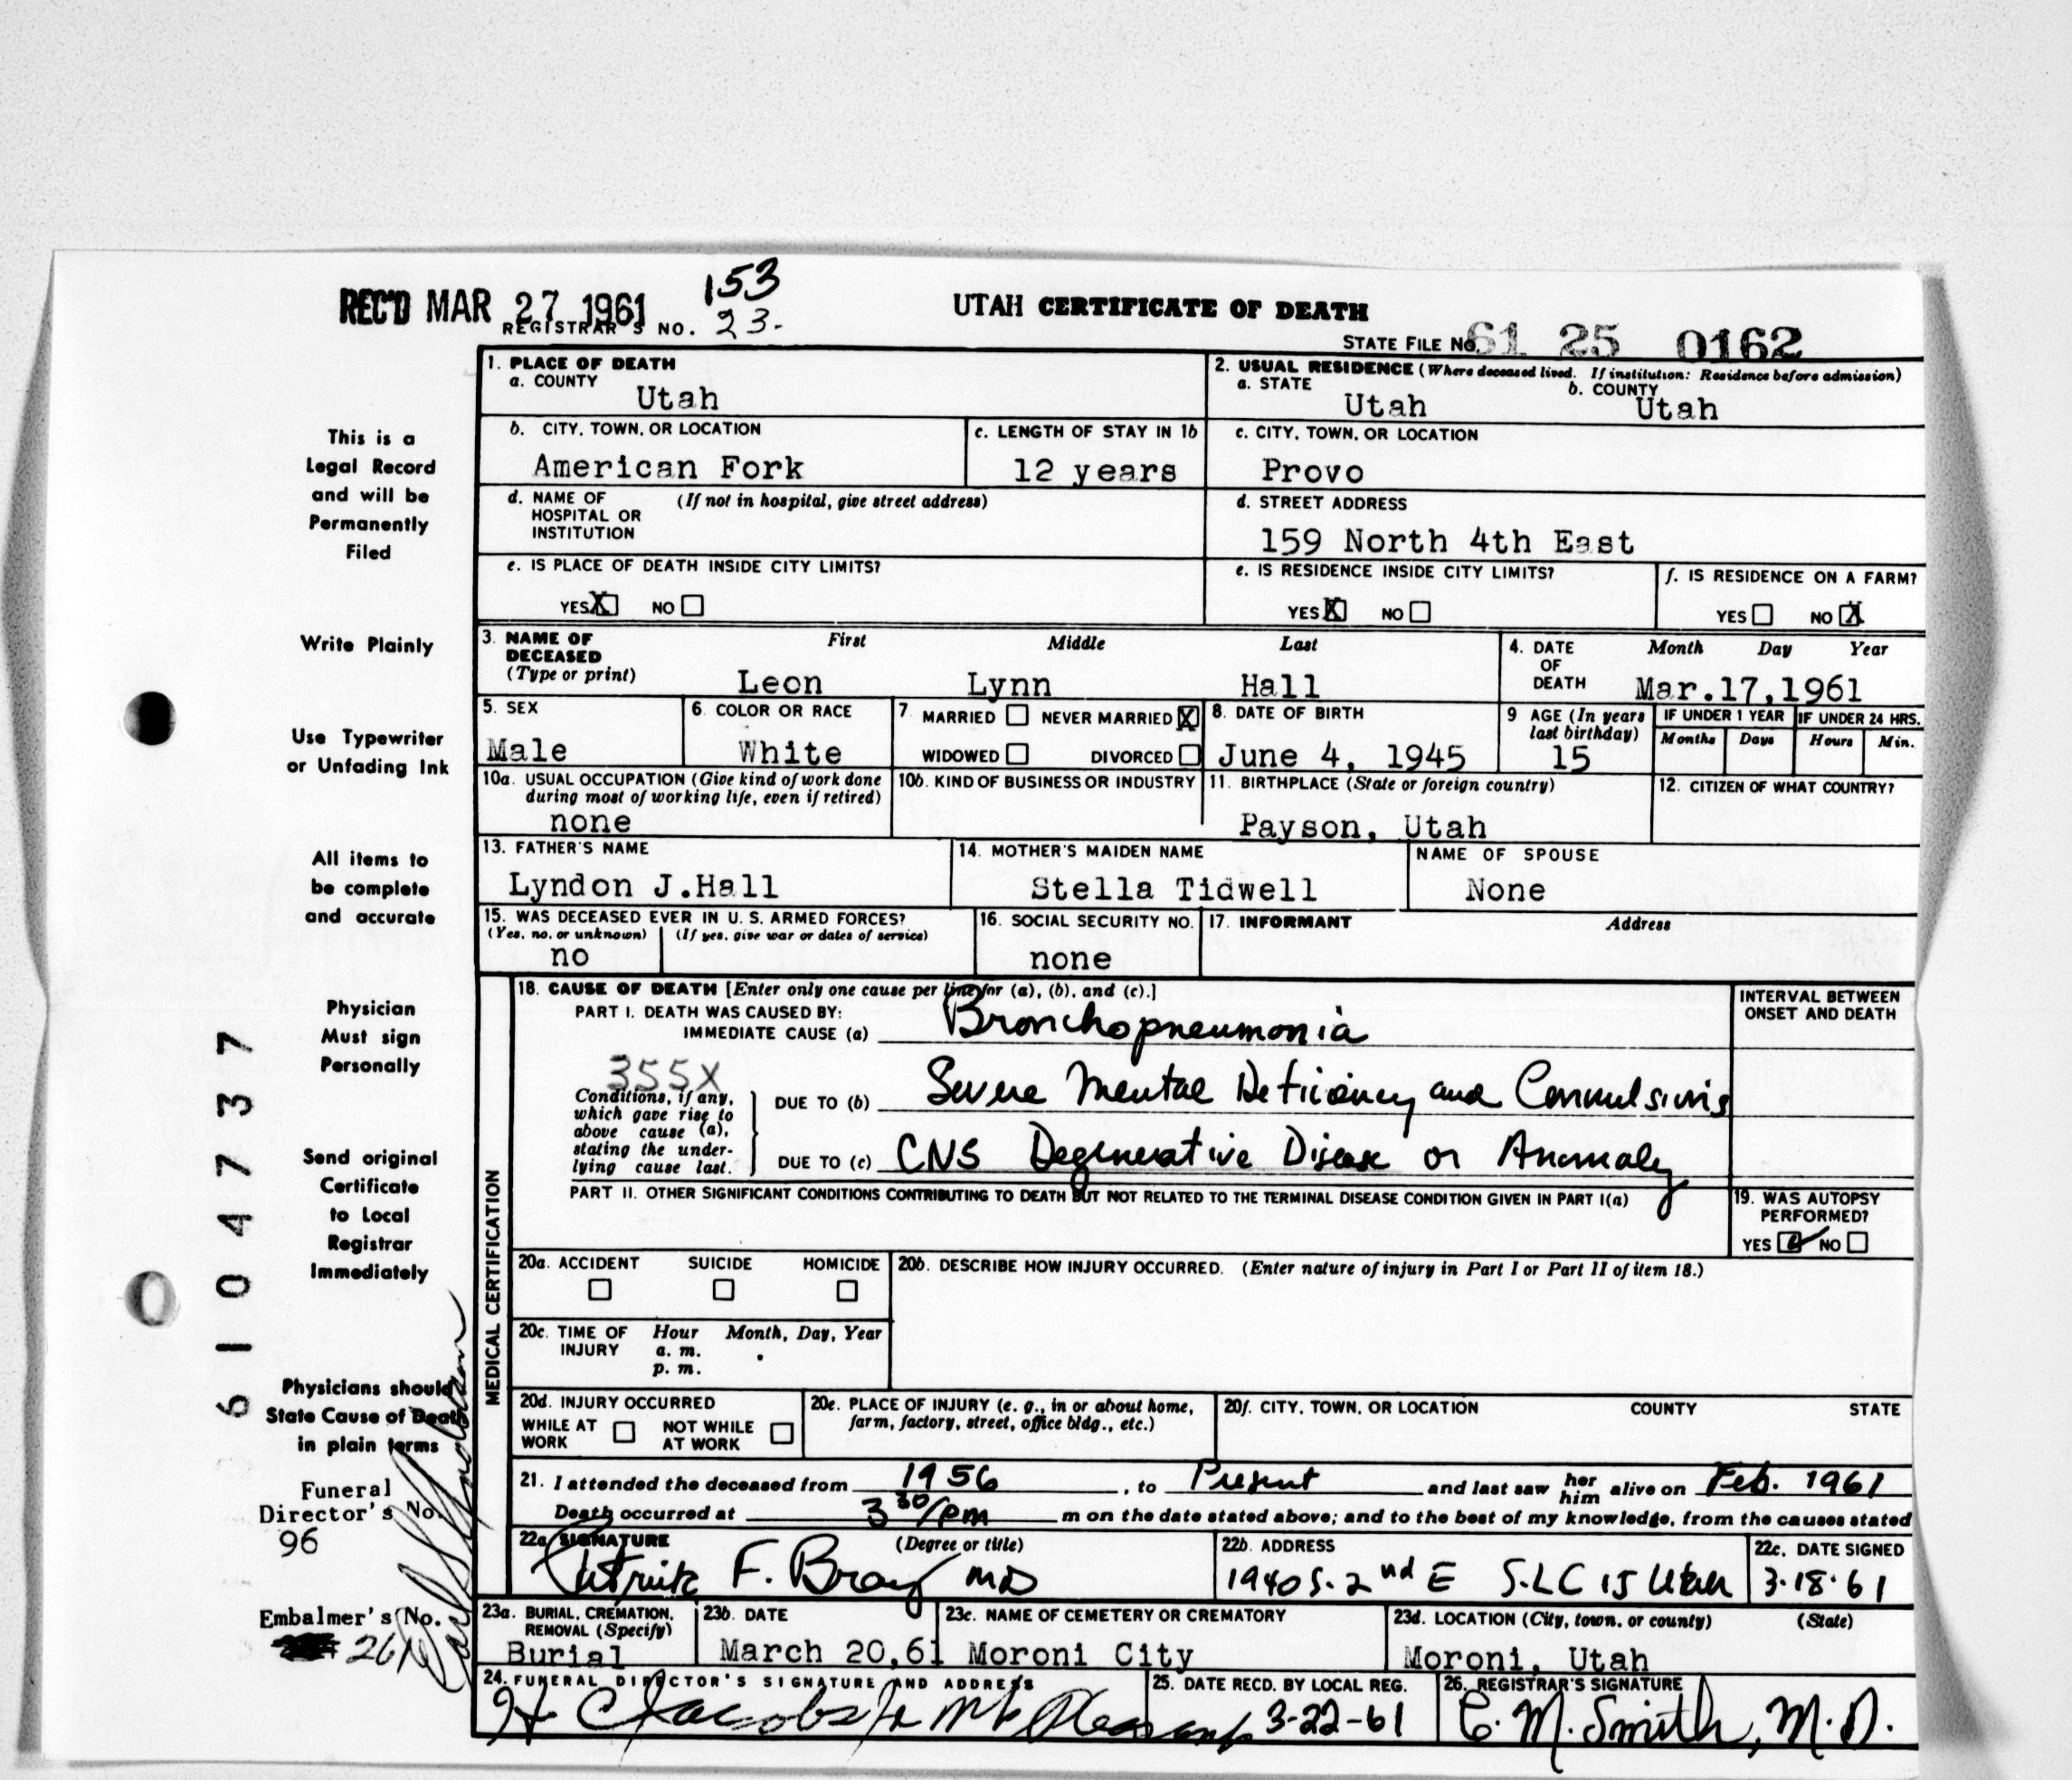 REC'D MAR 27 1961
153
REGISTRAR'S NO. 23.
UTAH CERTIFICATE OF DEATH
STATE FILE NO. 61 25 0162
This is a
Legal Record
and will be
Permanently
Filed
Write Plainly
Use Typewriter
or Unfading Ink
All items to
be complete
and accurate
Physician
Must sign
Personally
Send original
Certificate
to Local
Registrar
Immediately
Physicians should
State Cause of Death
in plain terms
Funeral
Director's No.
96
Embalmer's No.
6104737
1. PLACE OF DEATH
a. COUNTY
Utah
2. USUAL RESIDENCE (Where deceased lived. If institution: Residence before admission)
a. STATE b. COUNTY
Utah Utah
b. CITY, TOWN, OR LOCATION
American Fork
c. LENGTH OF STAY IN 1b
12 years
c. CITY, TOWN, OR LOCATION
Provo
d. NAME OF (If not in hospital, give street address)
HOSPITAL OR
INSTITUTION
d. STREET ADDRESS
159 North 4th East
e. IS PLACE OF DEATH INSIDE CITY LIMITS?
YES X NO
e. IS RESIDENCE INSIDE CITY LIMITS?
YES X NO
f. IS RESIDENCE ON A FARM?
YES NO X
3. NAME OF First Middle Last
DECEASED
(Type or print) Leon Lynn Hall
4. DATE Month Day Year
OF
DEATH Mar.17,1961
5. SEX
Male
6. COLOR OR RACE
White
7. MARRIED NEVER MARRIED X
WIDOWED DIVORCED
8. DATE OF BIRTH
June 4, 1945
9 AGE (In years
last birthday)
15
IF UNDER 1 YEAR IF UNDER 24 HRS.
Months Days Hours Min.
10a. USUAL OCCUPATION (Give kind of work done
during most of working life, even if retired)
none
10b. KIND OF BUSINESS OR INDUSTRY
11. BIRTHPLACE (State or foreign country)
Payson, Utah
12. CITIZEN OF WHAT COUNTRY?
13. FATHER'S NAME
Lyndon J.Hall
14. MOTHER'S MAIDEN NAME
Stella Tidwell
NAME OF SPOUSE
None
15. WAS DECEASED EVER IN U. S. ARMED FORCES?
(Yes, no, or unknown) (If yes, give war or dates of service)
no
16. SOCIAL SECURITY NO.
none
17. INFORMANT Address
MEDICAL CERTIFICATION
18. CAUSE OF DEATH [Enter only one cause per line for (a), (b), and (c).]
PART I. DEATH WAS CAUSED BY:
IMMEDIATE CAUSE (a) Bronchopneumonia
355X
Conditions, if any,
which gave rise to
above cause (a),
stating the under-
lying cause last.
DUE TO (b) Severe Mental Deficiency and Convulsions
DUE TO (c) CNS Degenerative Disease or Anomaly
INTERVAL BETWEEN
ONSET AND DEATH
PART II. OTHER SIGNIFICANT CONDITIONS CONTRIBUTING TO DEATH BUT NOT RELATED TO THE TERMINAL DISEASE CONDITION GIVEN IN PART I(a)
19. WAS AUTOPSY
PERFORMED?
YES NO
20a. ACCIDENT SUICIDE HOMICIDE
20b. DESCRIBE HOW INJURY OCCURRED. (Enter nature of injury in Part I or Part II of item 18.)
20c. TIME OF Hour Month, Day, Year
INJURY a. m.
p. m.
20d. INJURY OCCURRED
WHILE AT NOT WHILE
WORK AT WORK
20e. PLACE OF INJURY (e. g., in or about home,
farm, factory, street, office bldg., etc.)
20f. CITY, TOWN, OR LOCATION COUNTY STATE
21. I attended the deceased from 1956, to Present and last saw her him alive on Feb. 1961
Death occurred at 3 30/pm m on the date stated above; and to the best of my knowledge, from the causes stated
22a. SIGNATURE (Degree or title)
F. Bray MD
22b. ADDRESS
1940 S. 2nd E S.L.C 15 Utah
22c. DATE SIGNED
3.18.61
23a. BURIAL, CREMATION,
REMOVAL (Specify)
Burial
23b. DATE
March 20,61
23c. NAME OF CEMETERY OR CREMATORY
Moroni City
23d. LOCATION (City, town, or county) (State)
Moroni, Utah
24. FUNERAL DIRECTOR'S SIGNATURE AND ADDRESS
25. DATE RECD. BY LOCAL REG.
3-22-61
26. REGISTRAR'S SIGNATURE
C. M. Smith, M.D.